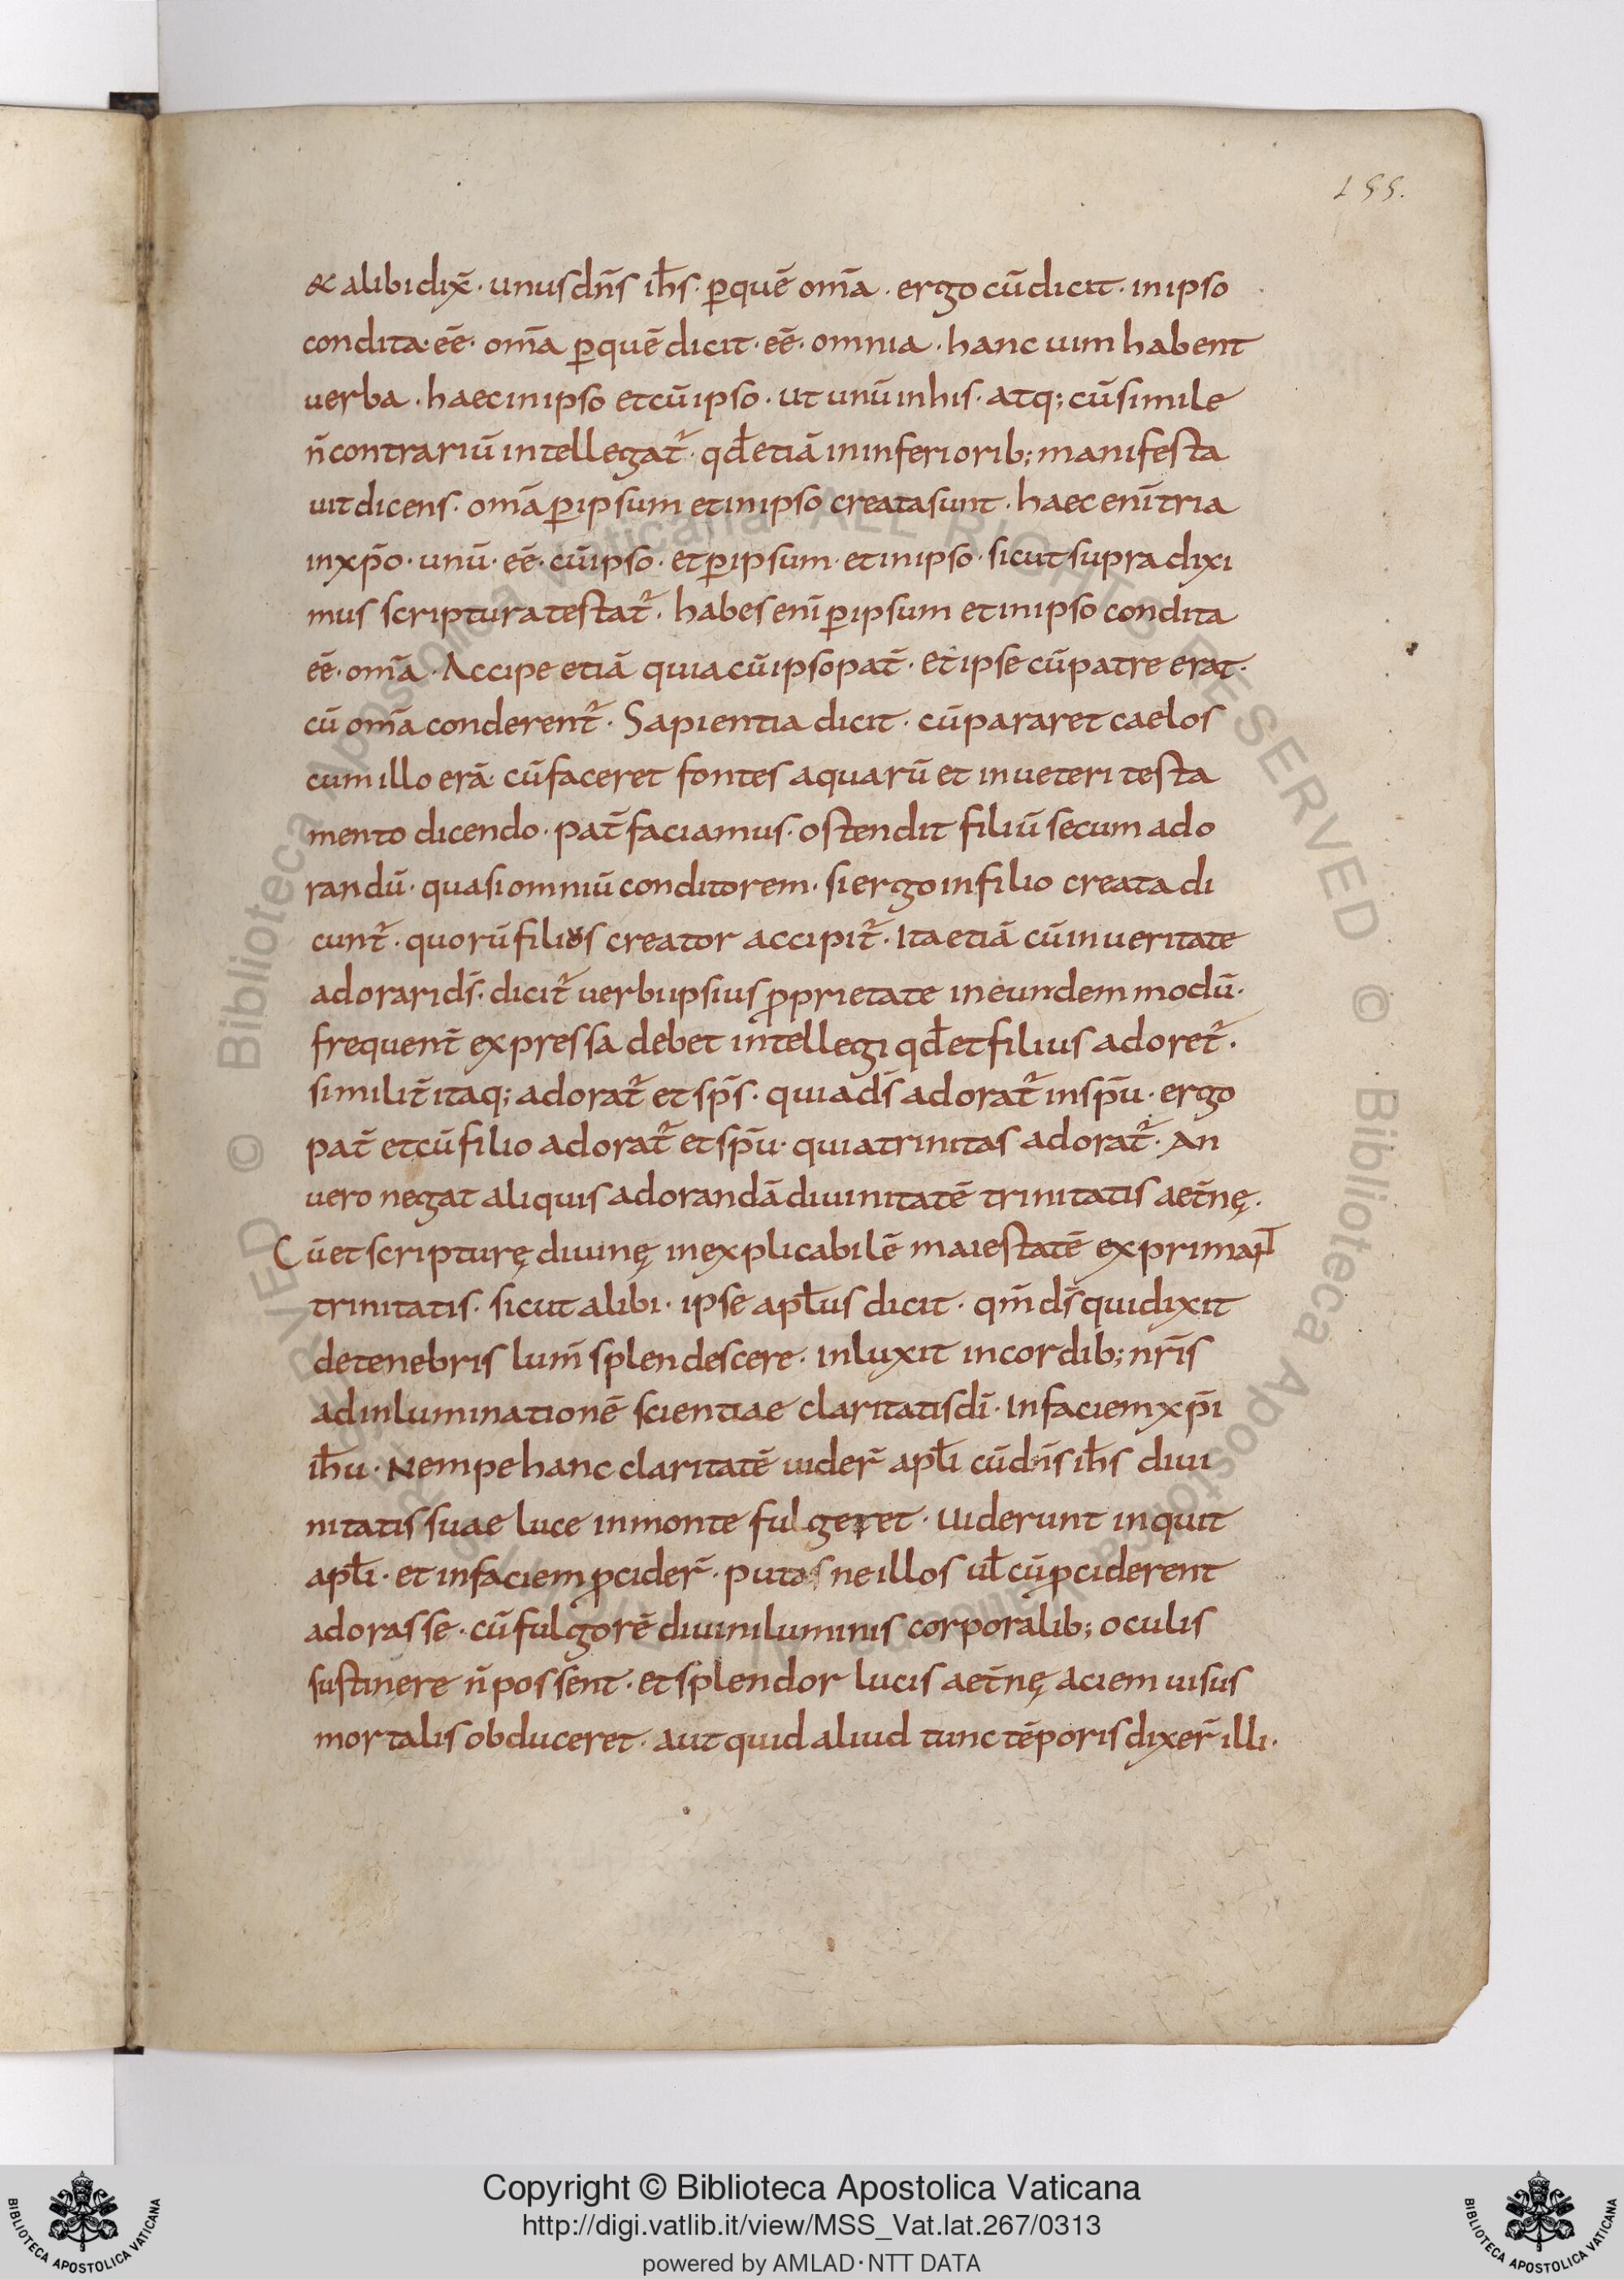 155.
& alibi dix̄ · unus dn̄s ih̄s · ꝑ quē om̄a · ergo cū dicit · in ipso
condita · eē · om̄a ꝑ quē dicit · eē · omnia · hanc uim habent
uerba · haec in ipso et cū ipso · ut unū in his · atq; cū simile
n̄ contrariū intellegat᷑ · qd̄ etiā in inferiorib; manifesta
uit dicens · om̄a ꝑ ipsum et in ipso creata sunt · haec enī tria
in xp̄o · unū · eē · cū ipso · et ꝑ ipsum · et in ipso · sicut supra dixi
mus scriptura testat᷑ · habes enī ꝑ ipsum et in ipso condita
eē · om̄a · Accipe etiā quia cū ipso pat̄ · et ipse cū patre erat ·
cū om̄a conderent᷑ · Sapientia dicit · cū pararet caelos
cum illo erā · cū faceret fontes aquarū et in ueteri testa
mento dicendo · pat̄ faciamus · ostendit filiū secum ado
randū · quasi omniū conditorem · si ergo in filio creata di
cunt᷑ · quorū filius creator accipit᷑ · Ita etiā cū in ueritate
adorari ds̄ · dicit᷑ uerbi ipsius ꝓprietate in eundem modū ·
frequent̄ expressa debet intellegi qd̄ et filius adoret᷑ ·
similit̄ itaq; adorat᷑ et sp̄s · quia ds̄ adorat᷑ in sp̄u · ergo
pat̄ et cū filio adorat᷑ et sp̄u · quia trinitas adorat᷑ · An
uero negat aliquis adorandā diuinitatē trinitatis aet̄nę ·
Cū et scripturę diuinę inexplicabilē maiestatē expriman͞t
trinitatis · sicut alibi · ipse apl̄us dicit · qm̄ ds̄ qui dixit
de tenebris lum̄ splendescere · inluxit in cordib; nr̄is
ad inluminationē scientiae claritatis dī · In faciem xp̄i
ih̄u · Nempe hanc claritatē uider̄ apl̄i cū dn̄s ih̄s diui
nitatis suae luce in monte fulgeret · Uiderunt inquit
apl̄i · et in faciem ꝓcider̄ · putasne illos ul̄ cū ꝓciderent
adorasse · cū fulgorē diuini luminis corporalib; oculis
sustinere n̄ possent · et splendor lucis aet̄nę aciem uisus
mortalis obduceret · aut quid aliud tunc tēporis dixer̄ illi ·
Copyright © Biblioteca Apostolica Vaticana
http://digi.vatlib.it/view/MSS_Vat.lat.267/0313
powered by AMLAD · NTT DATA